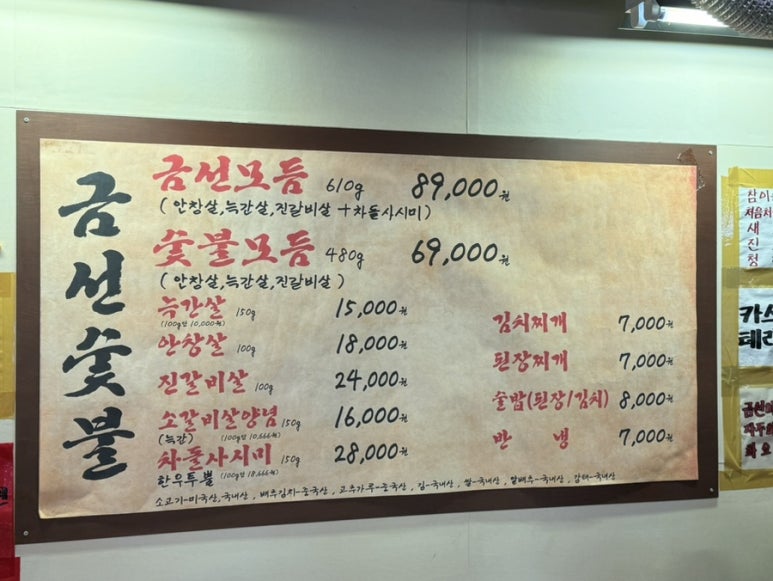 금선숯불
금선모듬 610g 89,000원
(안창살,늑간살,진갈비살+차돌사시미)
숯불모듬 480g 69,000원
(안창살,늑간살,진갈비살)
늑간살 150g 15,000원
(100g당 10,000원)
안창살 100g 18,000원
진갈비살 100g 24,000원
소갈비살양념 150g 16,000원
(늑간) (100g당 10,666원)
차돌사시미 150g 28,000원
한우투뿔 (100g당 18,666원)
김치찌개 7,000원
된장찌개 7,000원
술밥(된장/김치) 8,000원
반 냉 7,000원
소고기-미국산,국내산, 배추김치-중국산, 고추가루-중국산, 김-국내산, 쌀-국내산, 알배추-국내산,
참이
처음처
새
진
청
카스
테라
금선